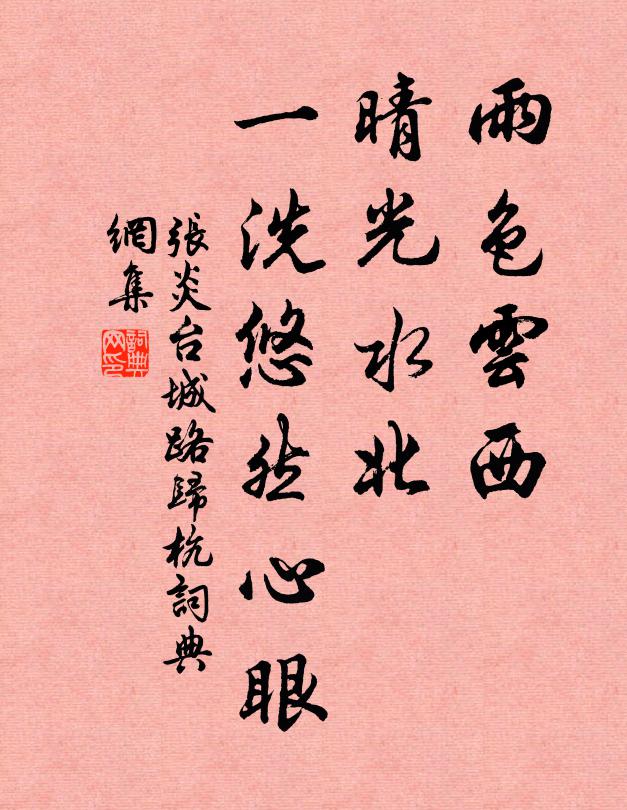 雨色雲西
晴光水北
一洗悠然心眼
張炎台城路歸杭詞典
網集
詞典
网印